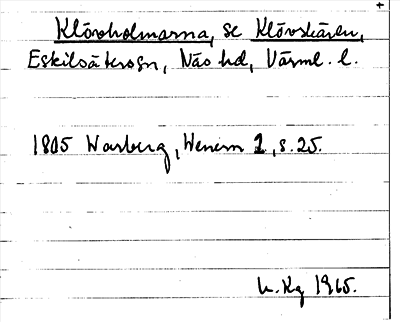 Klövholmarna, se Klövskären,
Eskilsäterssn, Näs hd, Värml. l.
1805 Warberg, Wenern 1, s. 25.
1965.